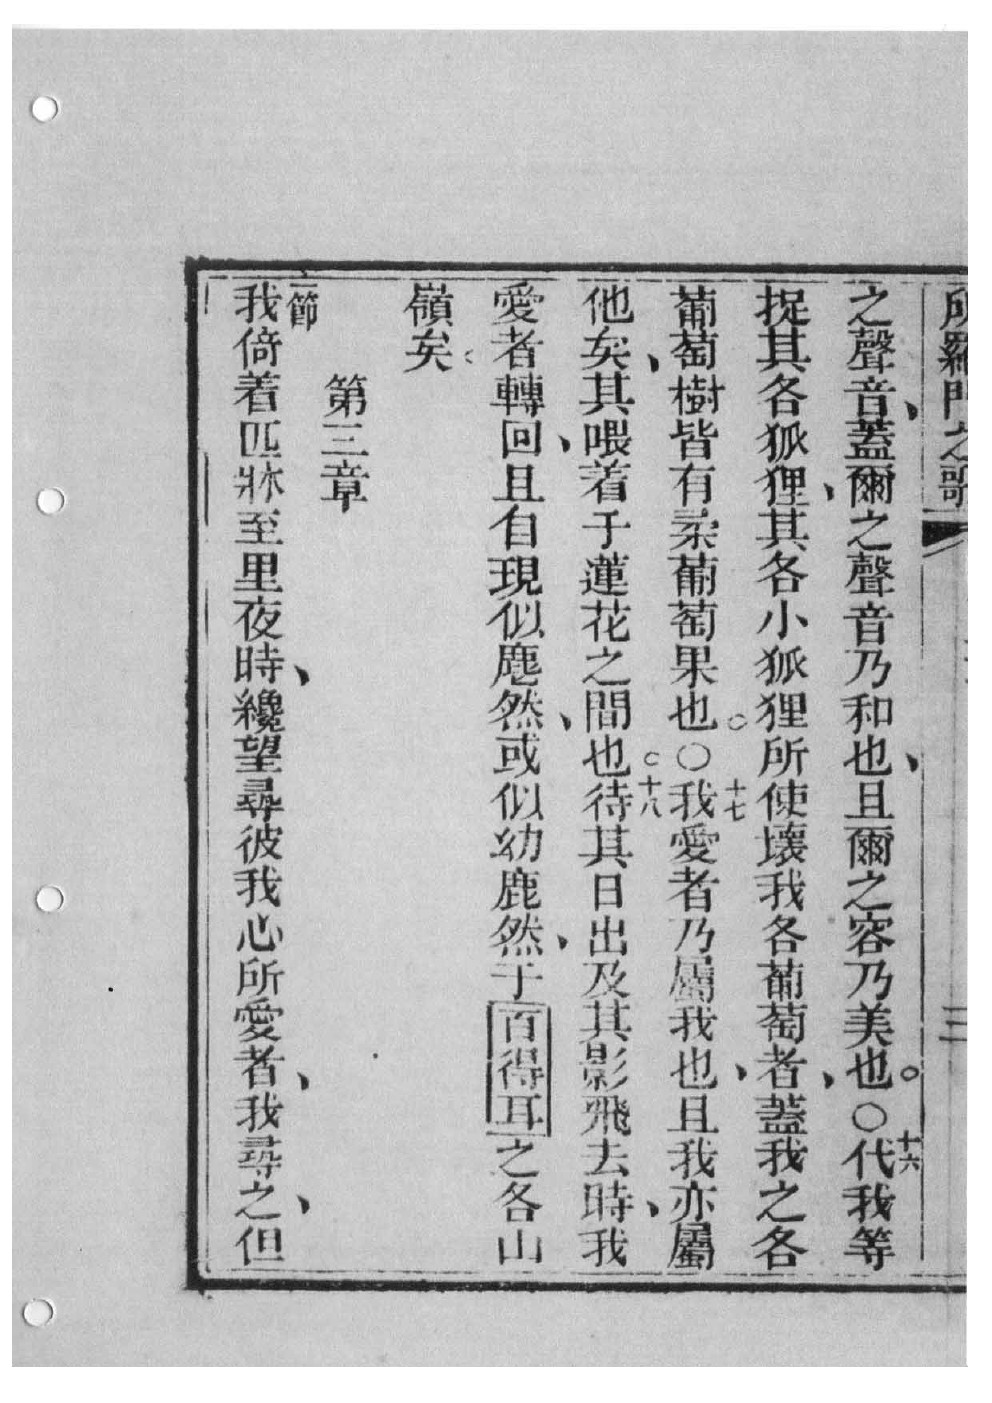 所羅門之歌 三
之聲音、蓋爾之聲音乃和也、且爾之容乃美也。○十六代我等
捉其各狐狸、其各小狐狸所使壞我各葡萄者、蓋我之各
葡萄樹皆有柔葡萄果也。○十七我愛者乃屬我也、且我亦屬
他矣、其喂着于蓮花之間也。十八待其日出及其影飛去時、我
愛者轉回、且自現似麀然、或似幼鹿然、于百得耳之各山
嶺矣。
第三章
一節我倚着匹牀至里夜時、纔望尋彼我心所愛者、我尋之、但